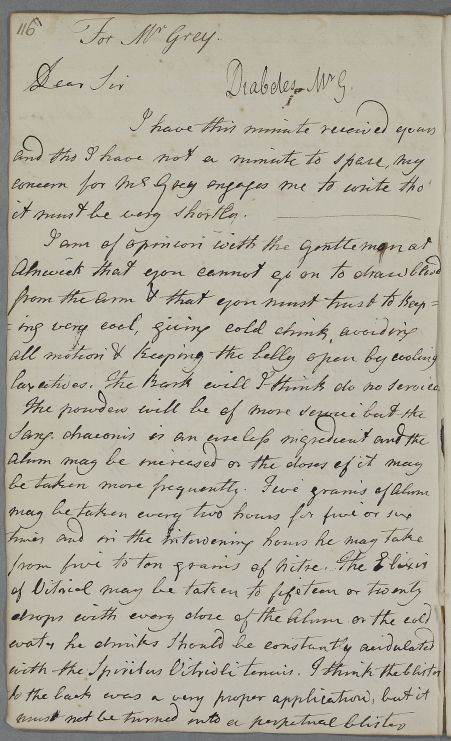 116
For Mr Grey.
Dear Sir
Diabetes Mr G.
I have this minute received yours
and tho I have not a minute to spare, my
concern for Mr Grey engages me to write tho'
it must be very shortly.
I am of opinion with the gentlemen at
Alnwick that you cannot go on to draw blood
from the arm & that you must trust to keep=
=ing very cool, giving cold drink, avoiding
all motion & keeping the belly open by cooling
laxatives. The Bark will I think do no service.
The powders will be of more service but the
Sang. draconis is an useless ingredient and the
Alum may be increased or the doses of it may
be taken more frequently. Five grains of Alum
may be taken every two hours for five or six
times and in the Intervening hours he may take
from five to ten grains of Nitre. The Elixir
of Vitriol may be taken to fifteen or twenty
drops with every dose of the Alum or the cold
water he drinks should be constantly acidulated
with the Spiritus Vitrioli tenuis. I think the blister
to the back was a very proper application, but it
must not be turned into a perpetual blister